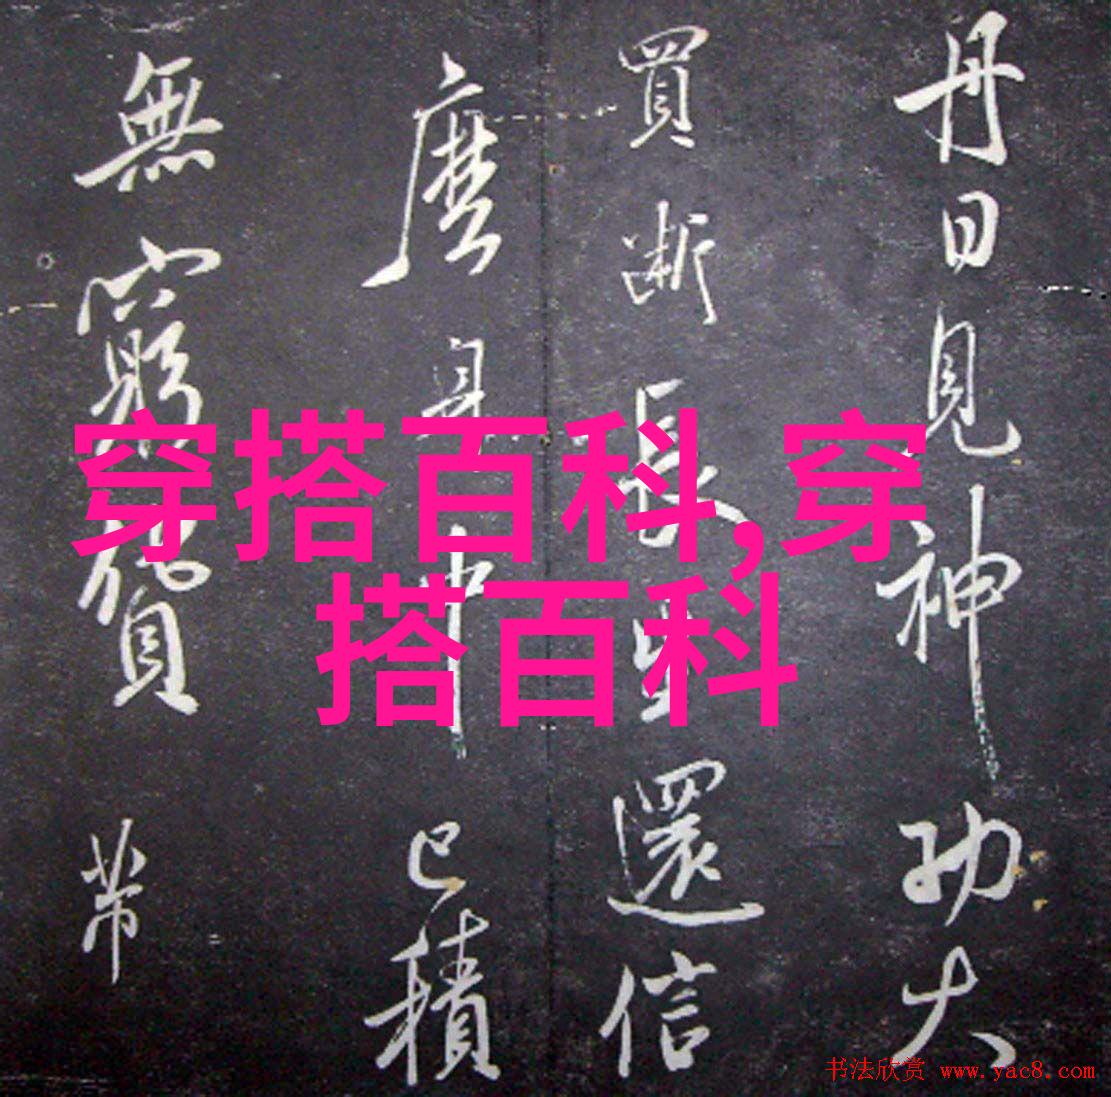 丹日見神功大
買斷長生還信
麼身中已積
無窮貨帶
穿搭百科,穿
搭百科
书法欣赏 www.yac8.com